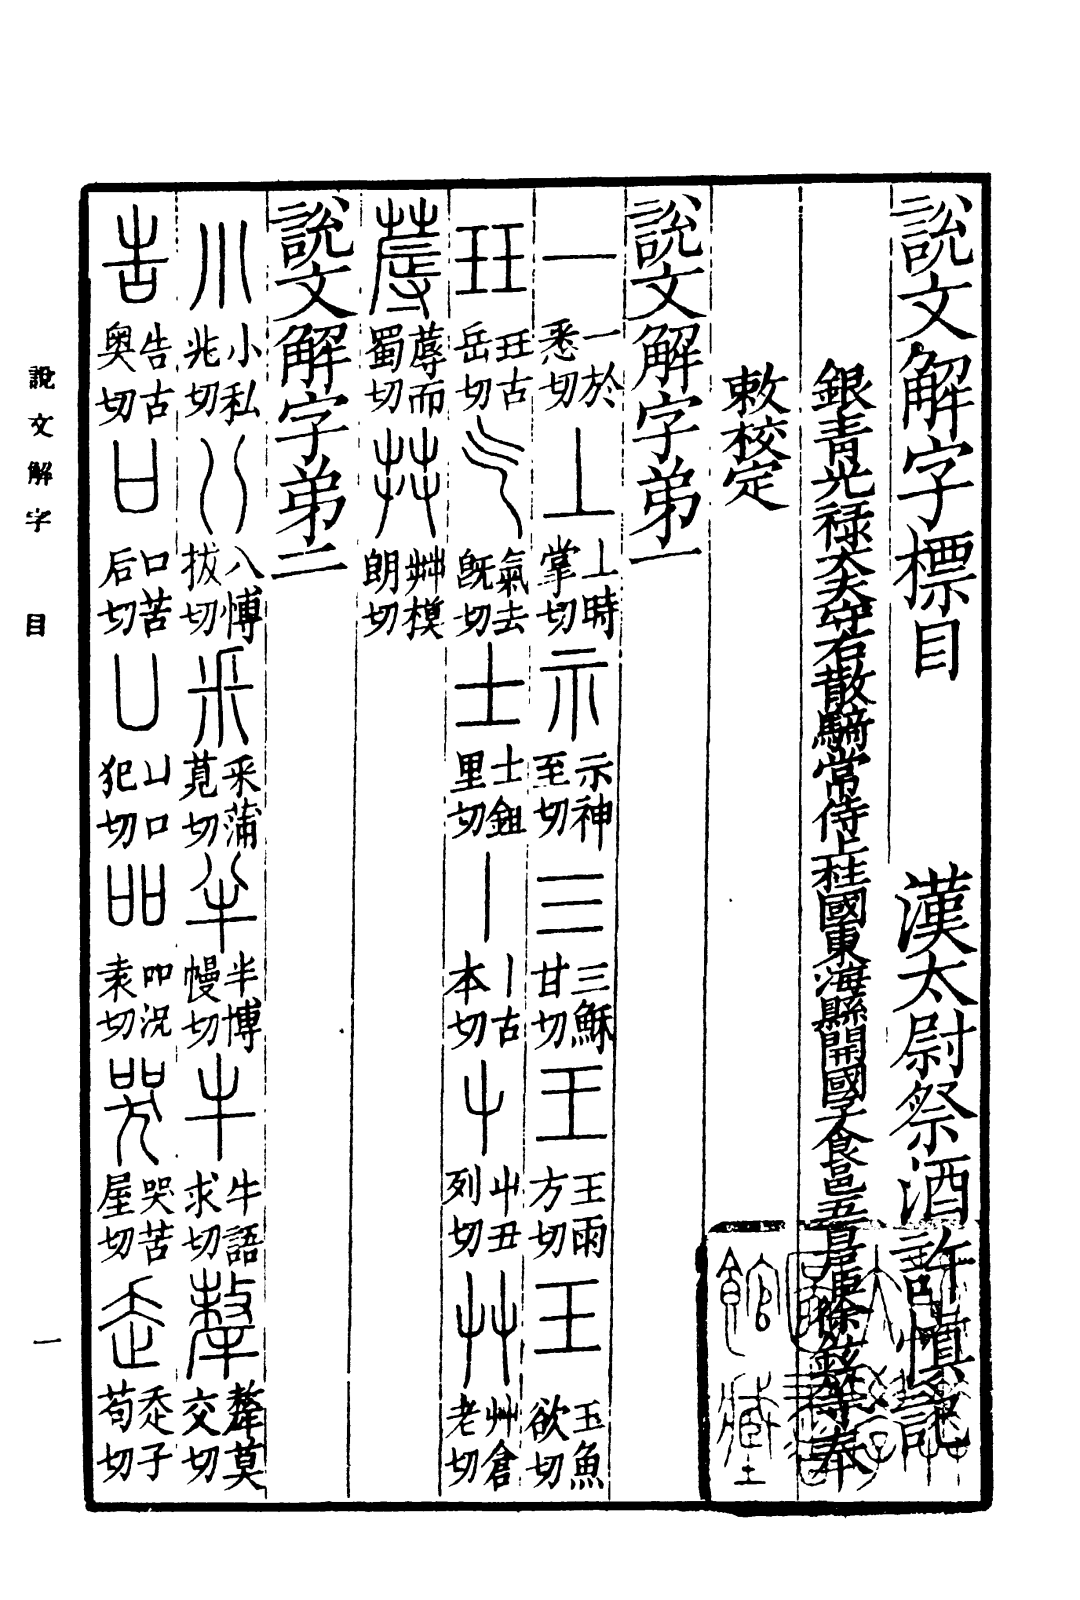 說文解字標目　漢太尉祭酒許慎記
銀青光祿大夫守右散騎常侍上柱國東海縣開國子食邑五百户臣徐鉉等奉
敕校定
說文解字弟一
一 一於悉切 丄 丄時掌切 示 示神至切 三 三穌甘切 王 王雨方切 玉 玉魚欲切
玨 玨古岳切 气 氣去既切 士 士鉏里切 丨 丨古本切 屮 屮丑列切 艸 艸倉老切
蓐 蓐而蜀切 茻 茻模朗切
說文解字弟二
小 小私兆切 八 八博拔切 釆 釆蒲莧切 半 半博幔切 牛 牛語求切 犛 犛莫交切
告 告古奧切 口 口苦后切 凵 凵口犯切 吅 吅況袁切 哭 哭苦屋切 走 走子苟切
說文解字　目
一